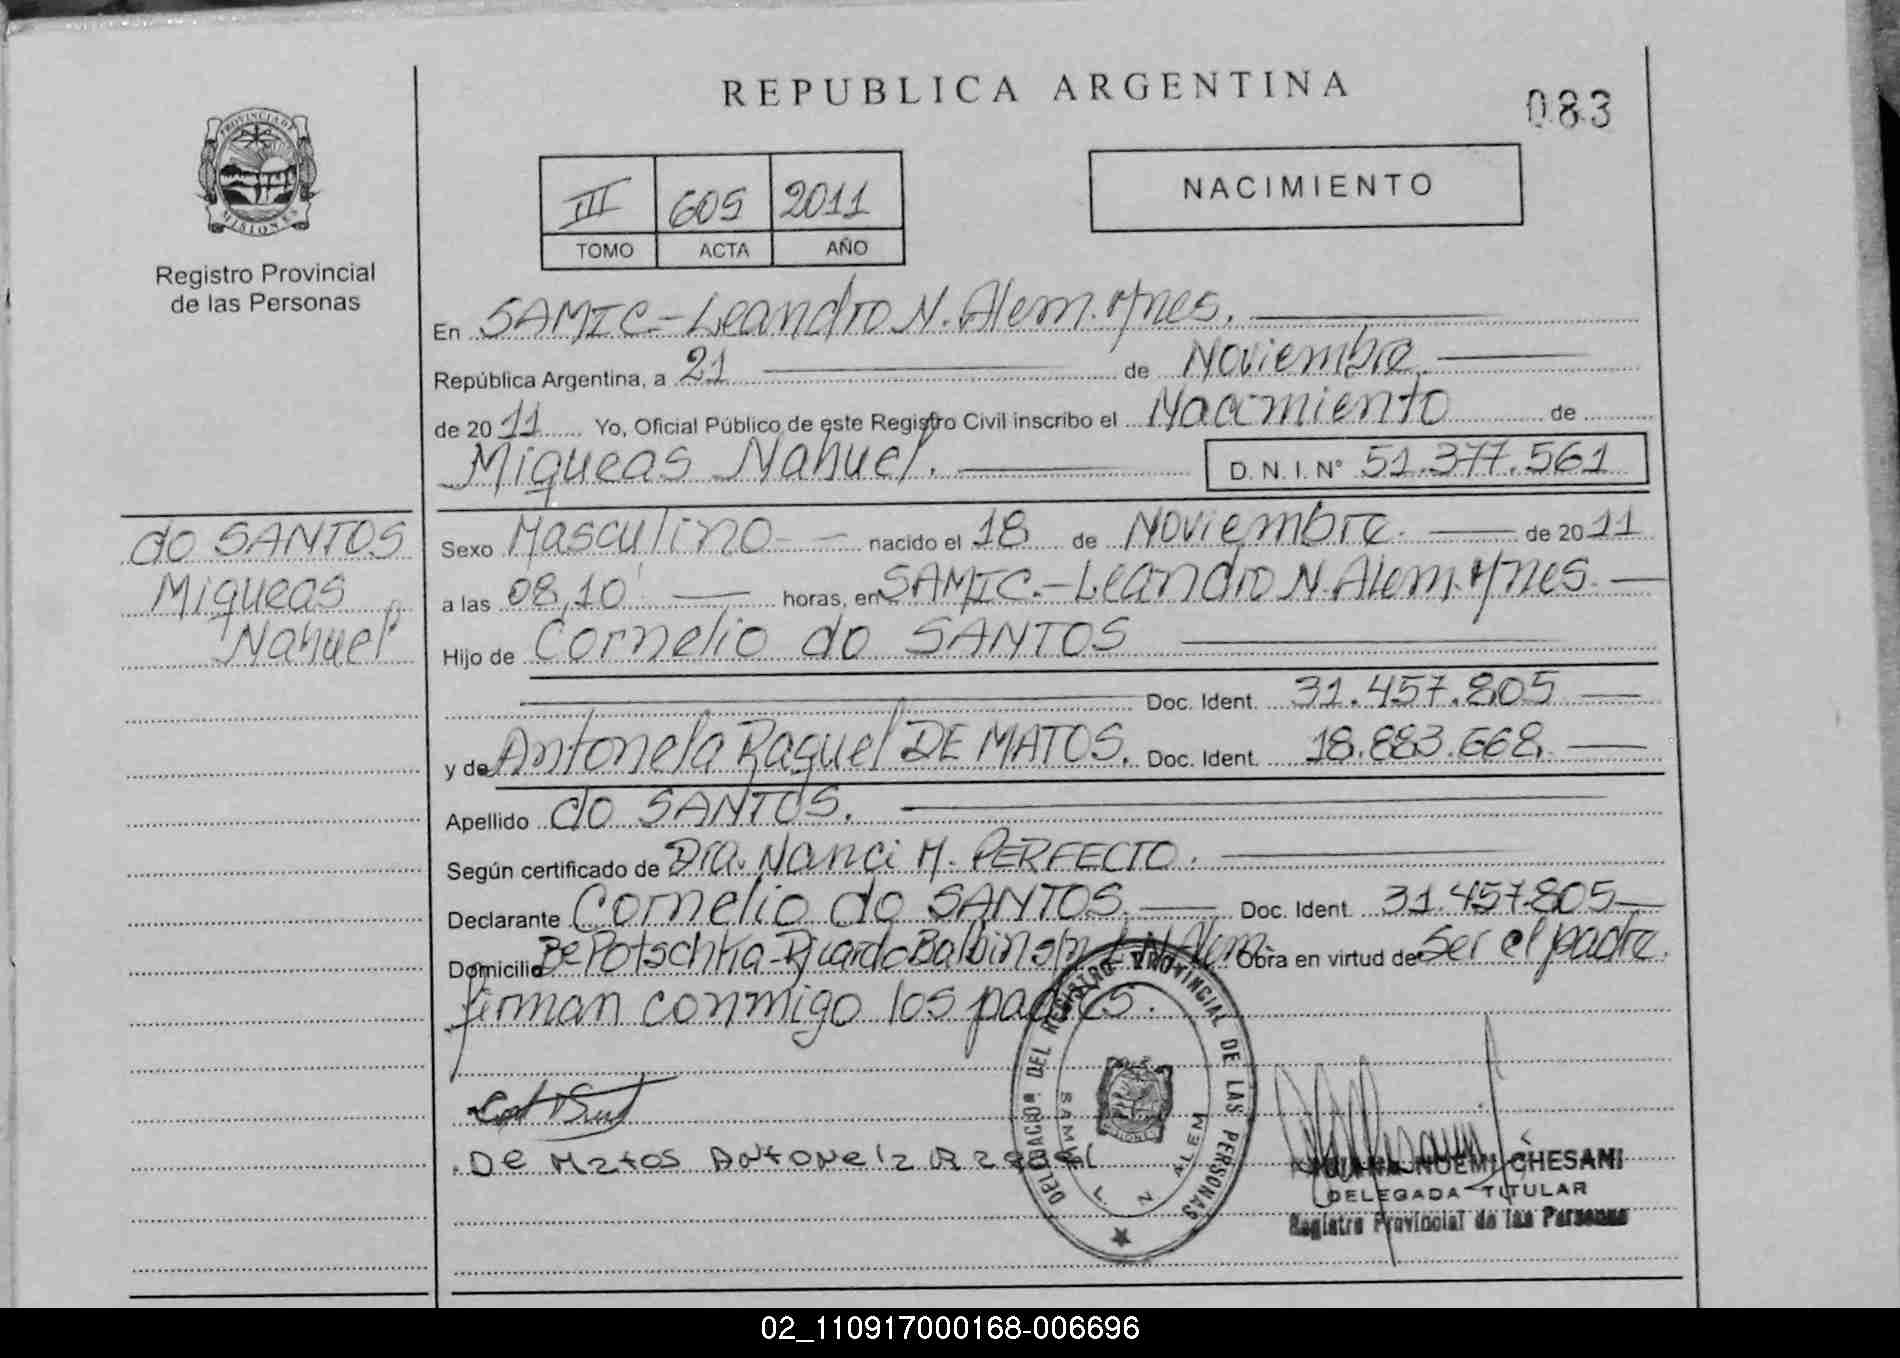 REPUBLICA ARGENTINA
083
PROVINCIA DE
MISIONES
Registro Provincial
de las Personas
III 605 2011
TOMO ACTA AÑO
NACIMIENTO
En SAMIC.-Leandro N. Alem. Mnes.
República Argentina, a 21 de Noviembre.
de 2011 Yo, Oficial Público de este Registro Civil inscribo el Nacimiento de
Miqueas Nahuel. D. N. I. N° 51.377.561
do SANTOS
Miqueas
Nahuel
Sexo Masculino nacido el 18 de Noviembre. de 2011
a las 08,10 horas, en SAMIC.-Leandro N. Alem. Mnes.
Hijo de Cornelio do SANTOS
Doc. Ident. 31.457.805
y de Antonela Raquel DE MATOS. Doc. Ident. 18.883.668.
Apellido do SANTOS.
Según certificado de Dra. Nanci M. PERFECTO.
Declarante Cornelio do SANTOS. Doc. Ident. 31.457.805
Domicilio Be Potschka-Ricardo Balbin s/n L. N. Alem Obra en virtud de Ser el padre.
firman conmigo los padres.
De Matos Antonela Raquel
DELEGACION DEL REGISTRO PROVINCIAL DE LAS PERSONAS
SAMIC L. N. ALEM
NOEMI CHESANI
DELEGADA TITULAR
Registro Provincial de las Personas
02_110917000168-006696